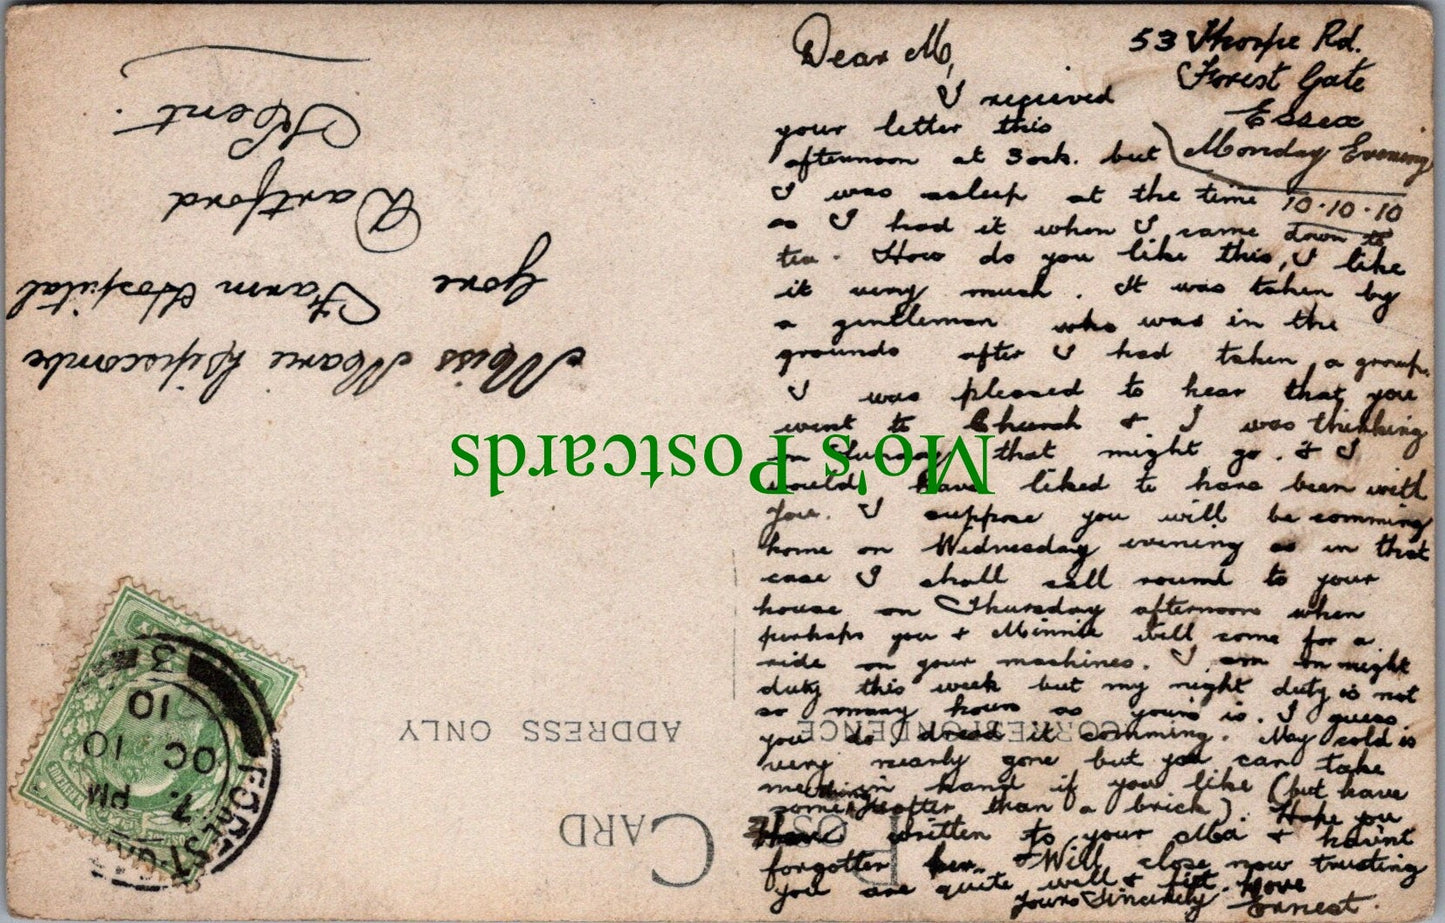 53 Thorpe Rd.
Forest Gate
Essex
Monday Evening
10.10.10
Dear M,
I recieved
your letter this
afternoon at 3 ock. but
I was asleep at the time
as I had it when I came down to
tea. How do you like this, I like
it very much. It was taken by
a gentleman who was in the
grounds after I had taken a group.
I was pleased to hear that you
went to Church & I was thinking
on Sunday that might go. & I
would have liked to have been with
you. I suppose you will be comming
home on Wednesday evening as in that
case I shall call round to your
house on Thursday afternoon when
perhaps you & Minnie will come for a
ride on your machines. I am on night
duty this week but my night duty is not
so many hours as yours is. I guess
you do dread it comming. May cold is
very nearly gone but you can take
me in hand if you like (but have
something softer than a brick). Hope you
have written to your Ma & havint
forgotten her. Will close now trusting
you are quite well & fit. Love
yours Sincerely Ernest.
Miss Marie Lipscombe
Gore Farm Hospital
Dartford
Kent.
Mo's Postcards
POST CARD
CORRESPONDENCE
ADDRESS ONLY
FOREST GATE
7. PM
OC 10
10
3